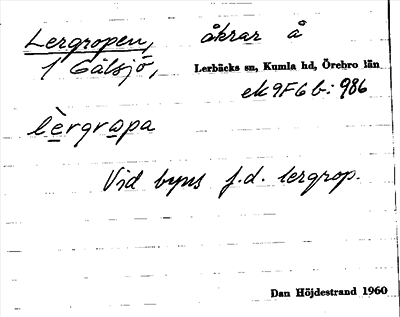 Lergropen, åkrar å
1 Gålsjö, Lerbäcks sn, Kumla hd, Örebro län
ek 9F6b: 986
lèrgropa
Vid byns f.d. lergrop.
Dan Höjdestrand 1960